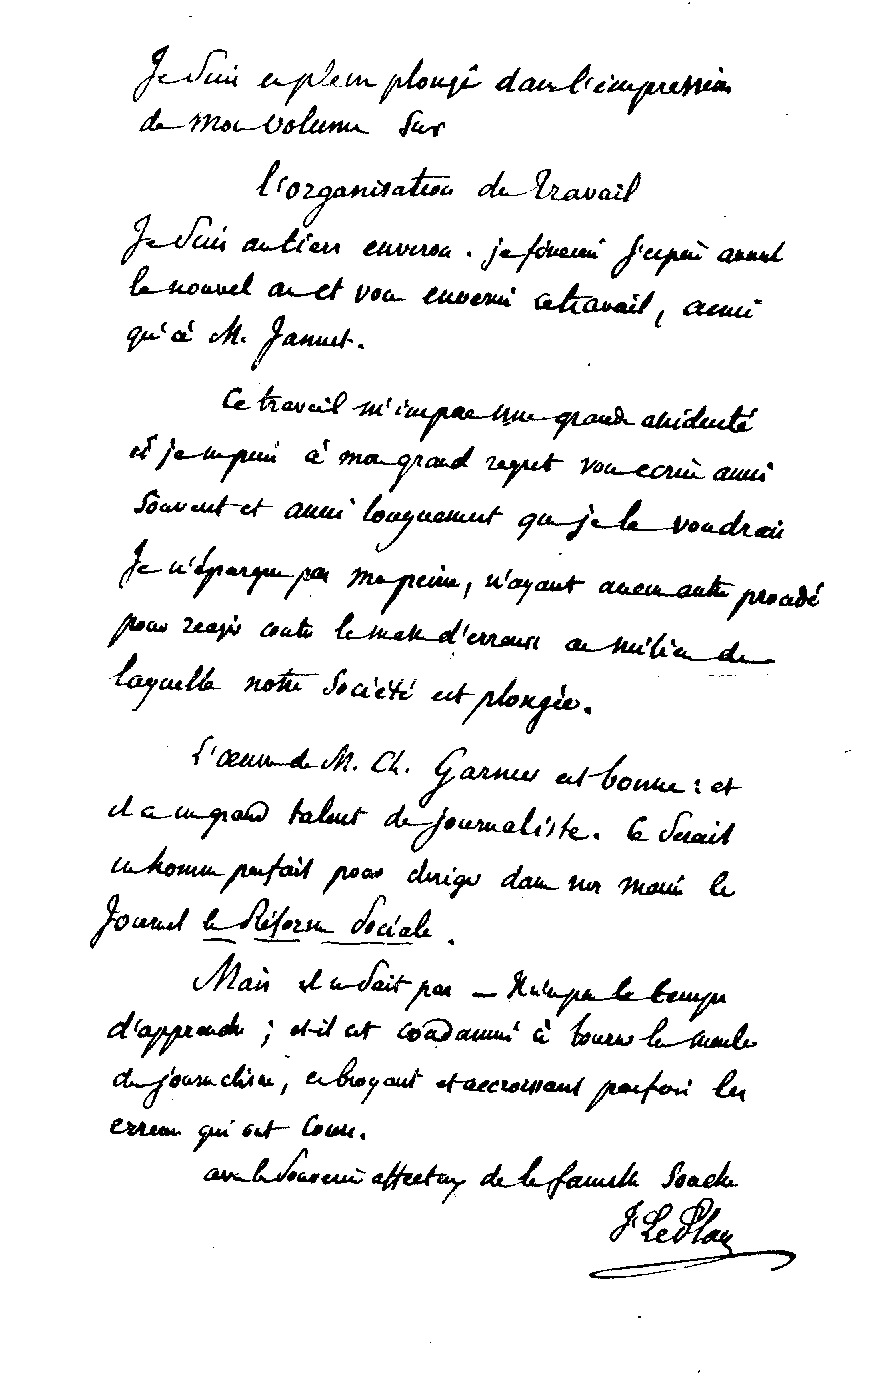 Je suis en plein plongé dans l'impression
de mon volume sur
l'organisation du Travail
Je suis au tiers environ. je finirai j'espère avant
le nouvel an et vous enverrai ce travail, ainsi
qu'à M. Jannet.
Ce travail m'impose une grande assiduité
et je ne puis à mon grand regret vous écrire aussi
souvent et aussi longuement que je le voudrais
Je n'épargne pas ma peine, n'ayant aucun autre procédé
pour reagir contre la masse d'erreurs au milieu de
laquelle notre Société est plongée.
L'œuvre de M. Ch. Garnier est bonne : et
il a un grand talent de journaliste. Ce serait
un homme parfait pour diriger dans nos mains le
Journal la Réforme Sociale.
Mais il ne sait pas — Il n'a pas le temps
d'apprendre ; et il est condamné à tourner la meule
du journalisme, en broyant et accroissant parfois les
erreurs qui ont cours.
avec le souvenir affectueux de la famille
F Le Play